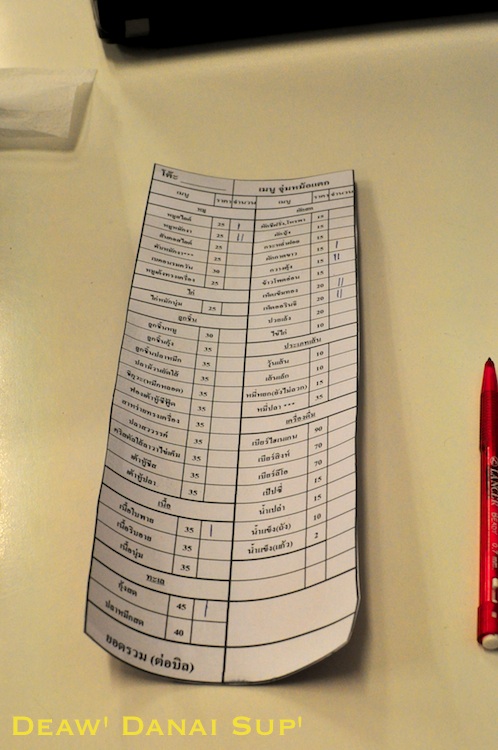 โต๊ะ
เมนู จุ่มหม้อแตก
เมนู ราคา จำนวน
เมนู ราคา จำนวน
หมู
หมูสไลด์ 25
หมูหมักงา 25
สันคอสไลด์ 25
ตับหมักงา*** 25
เบคอนรมควัน 30
หมูเด้งทรงเครื่อง 25
ไก่
ไก่หมักนุ่ม 25
ลูกชิ้น
ลูกชิ้นหมู 30
ลูกชิ้นกุ้ง 35
ลูกชิ้นปลาหมึก 35
ปลาม้วนผัดไส้ 35
ชิกูวะ(หมึกหลอด) 35
ฟองเต้าหู้ซีฟู๊ด 35
สาหร่ายทรงเครื่อง 35
ปลาสวรรค์ 35
35
เต้าหู้ชีส 35
เต้าหู้ปลา 35
เนื้อ
เนื้อใบพาย 35
เนื้อริบอาย 35
เนื้อนุ่ม 35
ทะเล
กุ้งสด 45
ปลาหมึกสด 40
ยอดรวม (ต่อบิล)
ผักสด
15
ผักบุ้ง 15
15
ผักกาดขาว 15
กวางตุ้ง 15
ข้าวโพดอ่อน 20
เห็ดเข็มทอง 20
เห็ดออรินจิ 20
ปวยเล้ง 20
ไข่ไก่ 10
ประเภทเส้น
วุ้นเส้น 10
เส้นเล็ก 10
หมี่หยก(ยังไม่ลวก) 15
หมี่ปลา *** 35
เครื่องดื่ม
เบียร์ไฮเนเกน 90
เบียร์สิงห์ 70
เบียร์ลีโอ 70
เป๊ปซี่ 15
น้ำเปล่า 15
น้ำแข็ง(ถัง) 10
น้ำแข็ง(แก้ว) 2
LANCER
Deaw' Danai Sup'